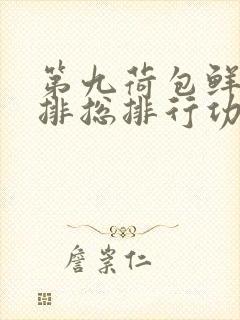 第九荷包鲜
排总排行功
詹崇仁